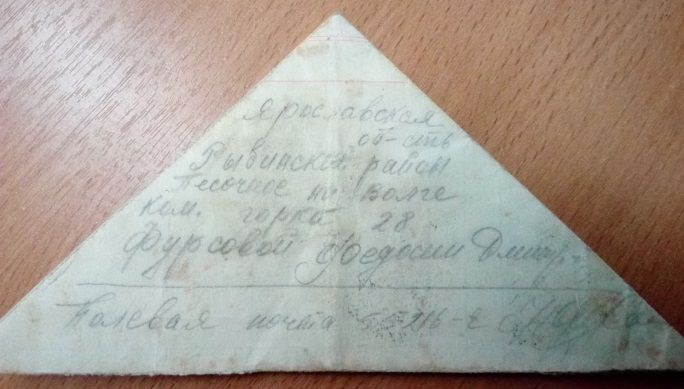 Ярославская
об-сть
Рыбинский район
Песочное на Волге
ком. горка 28
Фурсовой Федосии Дмитр.
Полевая почта